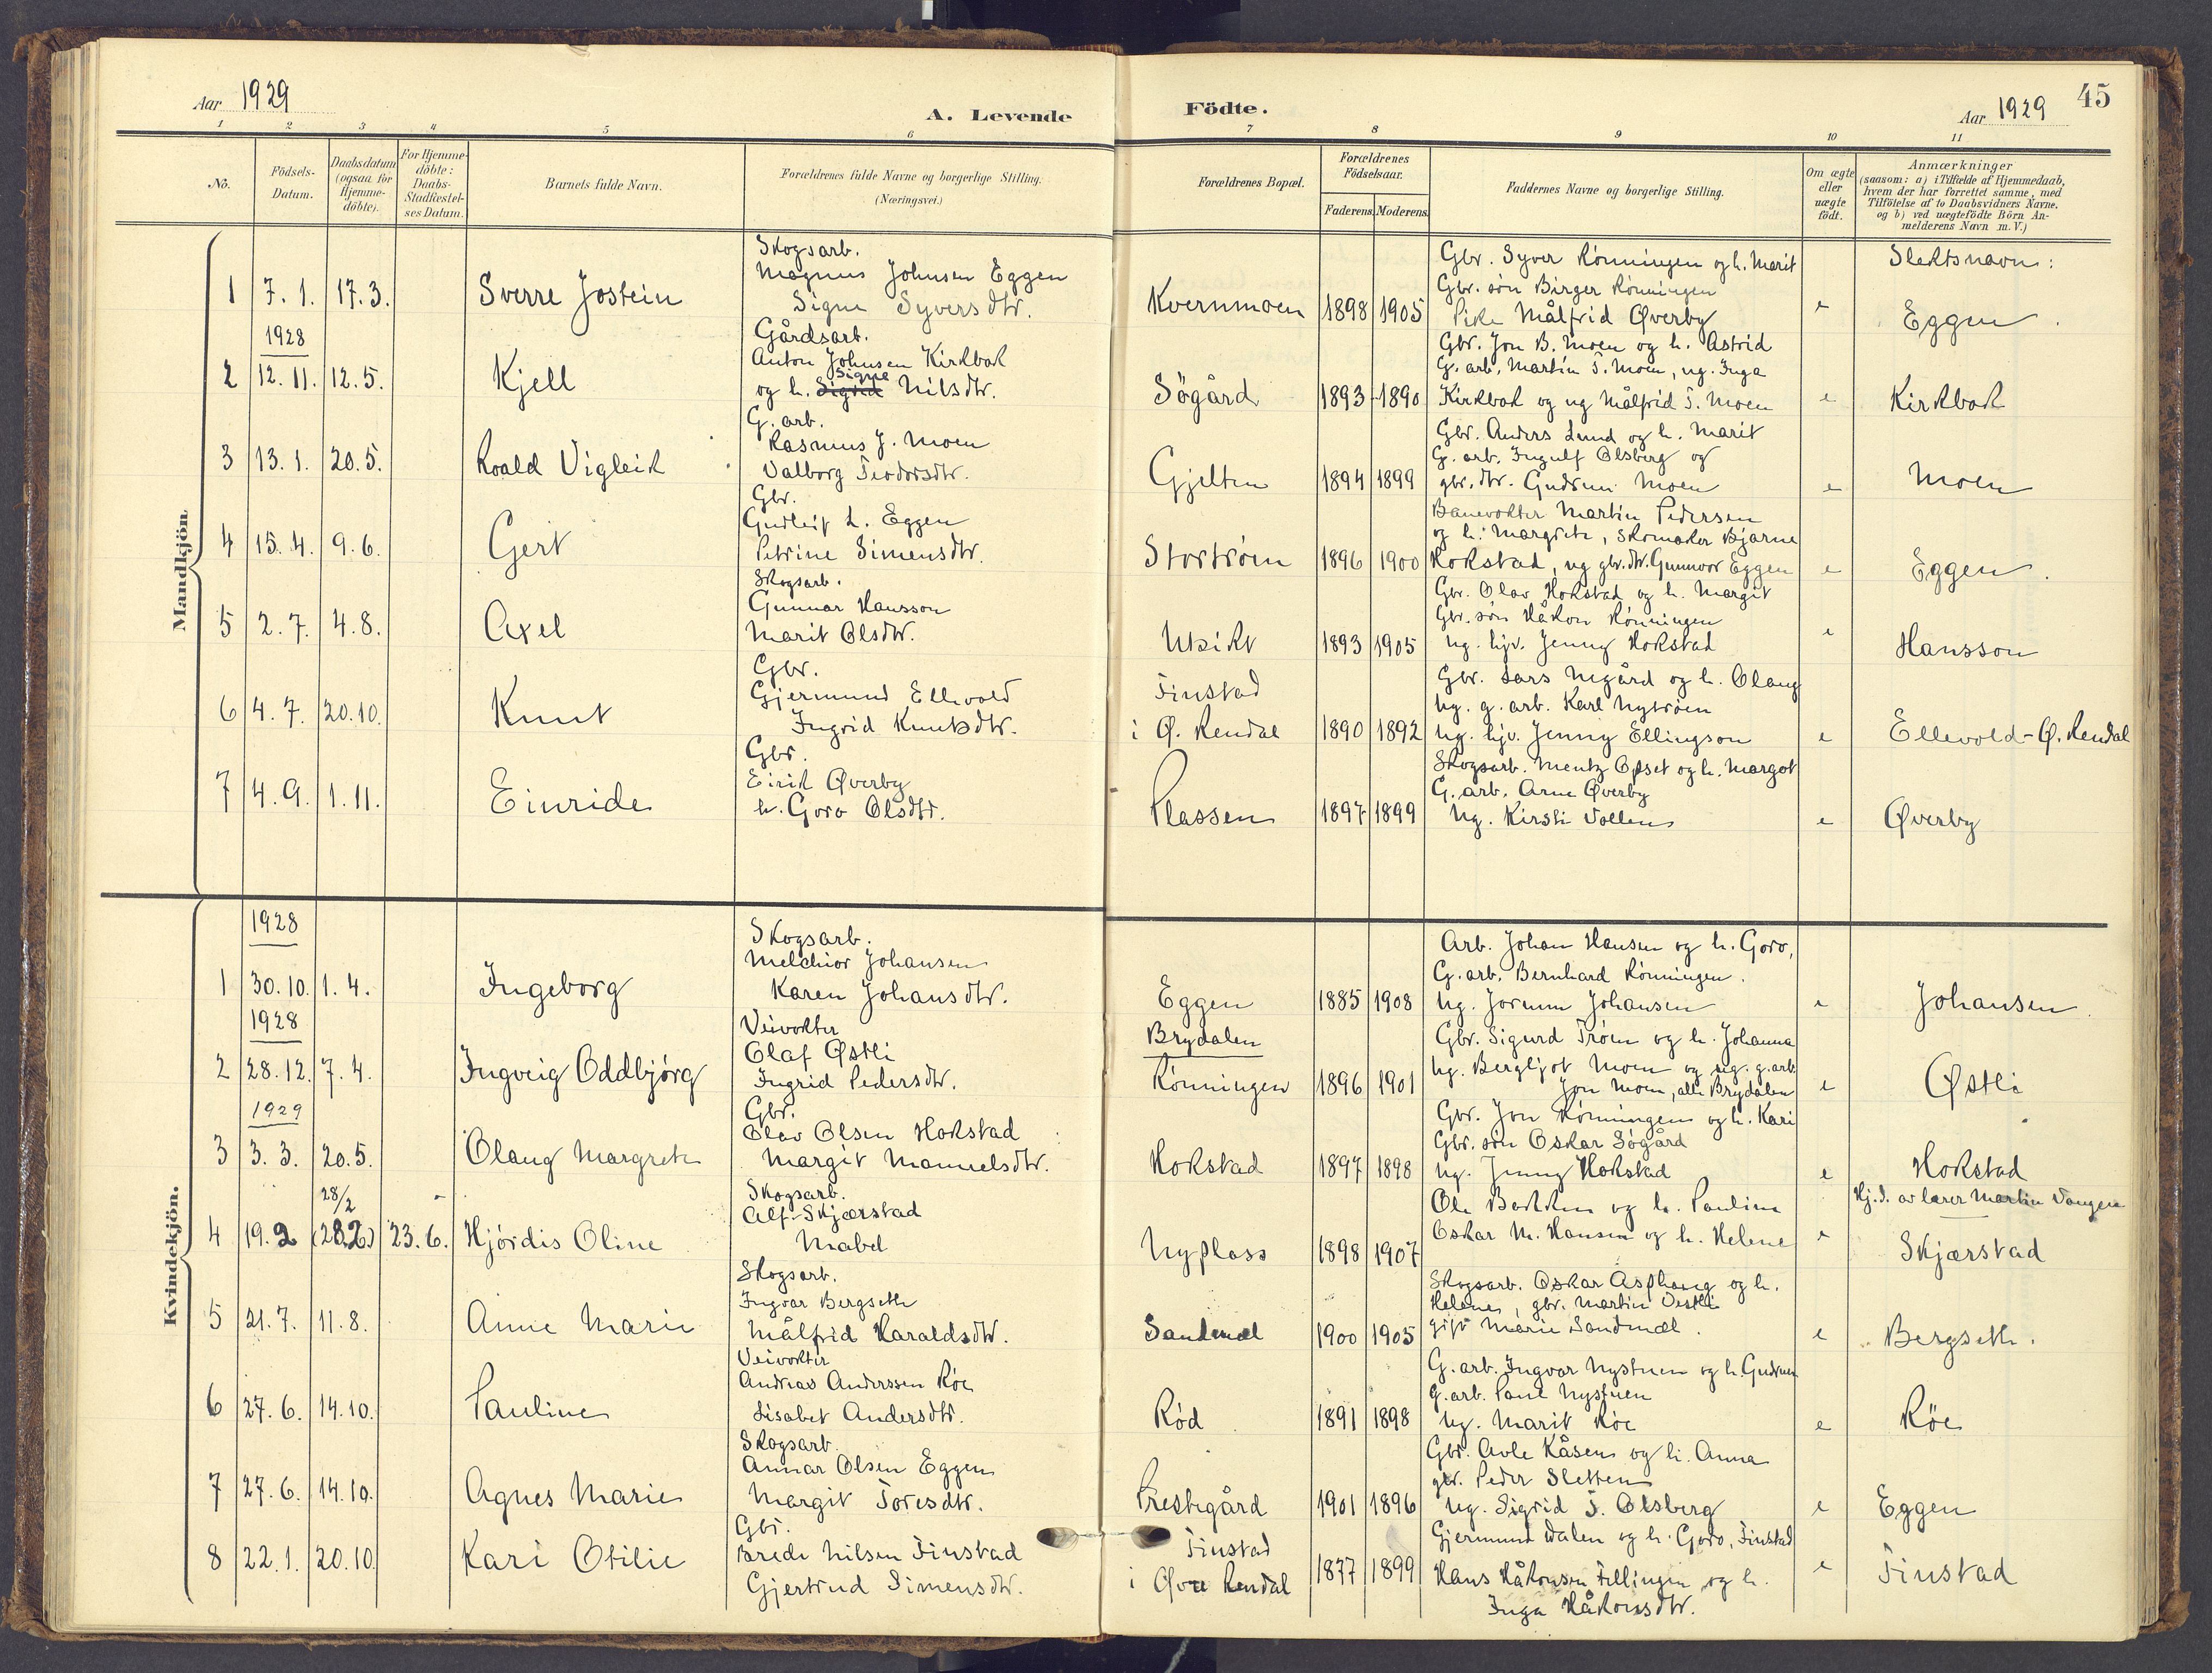 Aar 1929
A. Levende Födte.
Aar 1929
45
1 2 3 4 5 6 7 8 9 10 11
No.
Födsels-
Datum.
Daabsdatum
(ogsaa for
Hjemme-
döbte).
For Hjemme-
döbte:
Daabs-
Stadfæstel-
ses Datum.
Barnets fulde Navn.
Forældrenes fulde Navne og borgerlige Stilling.
(Næringsvei.)
Forældrenes Bopæl.
Forældrenes
Födselsaar.
Faderens. Moderens.
Faddernes Navne og borgerlige Stilling.
Om ægte
eller
uægte
födt.
Anmærkninger
(saasom: a) i Tilfælde af Hjemmedaab,
hvem der har forrettet samme, med
Tilföielse af to Daabsvidners Navne,
og b) ved uægtefödte Börn An-
melderens Navn m. V.)
Mandkjön
1 7. 1. 17. 3. Sverre Jostein
Skogsarb.
Magnus Johnsen Eggen
Signe Syversdtr.
Kvernmoen 1898 1905
Gbr. Syver Rønningen og h. Marit
Gbr. søn Birger Rønningen
Pike Målfrid Øverby
e
Slektsnavn:
Eggen.
1928
2 12. 11. 12. 5. Kjell
Gårdsarb.
Anton Johnsen Kirkbak
Signe
og h. Sigrid Nilsdtr.
Søgård 1893 1890
Gbr. Jon B. Moen og h. Astrid
G. arb. Martin T. Moen, ug. Inga
Kirkbak og ug Målfrid T. Moen
e Kirkbak
3 13. 1. 20. 5. Roald Vigleik
G. arb.
Rasmus J. Moen
Valborg Teodorsdtr.
Gjelten 1894 1899
Gbr. Anders Lund og h. Marit
G. arb. Ingulf Olsberg og
gbr. dtr. Gudrun Moen
e Moen
4 15. 4. 9. 6. Gert
Gbr.
Gudleif L. Eggen
Petrine Simensdtr.
Storstrøm 1896 1900
Banevokter Martin Pedersen
og h. Margrete, Skomaker Bjarne
Hokstad, ug gbr. dtr. Gunnvor Eggen
e Eggen.
5 2. 7. 4. 8. Axel
Skogsarb.
Gunnar Hansson
Marit Olsdtr.
Utsikt 1893 1905
Gbr. Olav Hokstad og h. Margit
Gbr. søn Håkon Rønningen
Ug. hjv. Jenny Hokstad
e Hansson
6 4. 7. 20. 10. Knut
Gbr.
Gjermund Ellevold
Ingrid Knutsdtr.
Finstad
i Ø. Rendal 1890 1892
Gbr. Lars Negård og h. Olaug
Ug. g. arb. Karl Nytrøen
Ug. hjv. Jenny Ellingson
e Ellevold-Ø. Rendal
7 4. 9. 1. 11. Einride
Gbr.
Eirik Øverby
h. Goro Olsdtr.
Plassen 1897 1899
Skogsarb. Mentz Opset og h. Margot
G. arb. Arne Øverby
Ug. Kirsti Vollen
e Øverby
Kvindekjön.
1928
1 30. 10. 1. 4. Ingeborg
Skogsarb.
Melchior Johansen
Karen Johansdtr.
Eggen 1885 1908
Arb. Johan Hansen og h. Goro,
G. arb. Bernhard Rønningen.
Ug. Jorunn Johansen
e Johansen.
1928
2 28. 12. 7. 4. Ingveig Oddbjørg
Veivokter
Olaf Østli
Ingrid Pedersdtr.
Brydalen
Rønningen 1896 1901
Gbr. Sigurd Trøen og h. Johanna
Ug. Bergljot Moen og ug. g. arb.
Jon Moen, alle Brydalen
e Østli
1929
3 3. 3. 20. 5. Olaug Margrete
Gbr.
Olav Olsen Hokstad
Margit Manuelsdtr.
Hokstad 1897 1898
Gbr. Jon Rønningen og h. Kari
Gbr. søn Oskar Søgård
Ug. Jenny Hokstad
e Hokstad
28/2
4 19. 2 (28.2) 23. 6. Hjørdis Oline
Skogsarb.
Alf Skjærstad
Mabel
Nyplass 1898 1907
Ole Bakken og h. Pauline
Oskar M. Hansen og h. Helene
e
Hj. d. av lærer Martin Vangen
Skjærstad
5 21. 7. 11. 8. Anne Marie
Skogsarb.
Ingvar Bergseth
Målfrid Haraldsdtr.
Sandmæl 1900 1905
Skogsarb. Oskar Asphaug og h.
Helene, gbr. Martin Vestli
gift Marie Sandmæl.
e Bergseth.
6 27. 6. 14. 10. Pauline
Veivokter
Andreas Anderssen Røe
Lisabet Andersdtr.
Rød 1891 1898
G. arb. Ingvar Nystuen og h. Gudrun
g. arb. Paul Nystuen
Ug. Marit Røe
e Røe
7 27. 6. 14. 10. Agnes Marie
Skogsarb.
Annar Olsen Eggen
Margit Toresdtr.
Prestegård 1901 1896
Gbr. Avle Kåsen og h. Anna
gbr. Peder Sletten
Ug. Sigrid T. Olsberg
e Eggen
8 22. 1. 20. 10. Kari Otilie
Gbr.
Brede Nilsen Finstad
Gjertrud Simensdtr.
Finstad
i Øvre Rendal 1877 1899
Gjermund Dalen og h. Goro, Finstad
Hans Håkonsen Fellingen og h.
Inga Håkonsdtr.
e Finstad